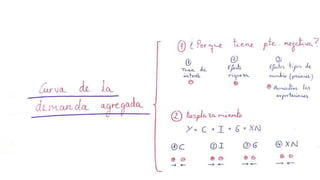 Curva de la
demanda agregada
① ¿Porque tiene pte negativa?
① Tasa de interés
② Efecto riqueza
③ Efectos tipos de cambio (precios)
Aumentan las exportaciones
② Desplazamiento
Y = C + I + G + XN
① C ② I ③ G ④ XN